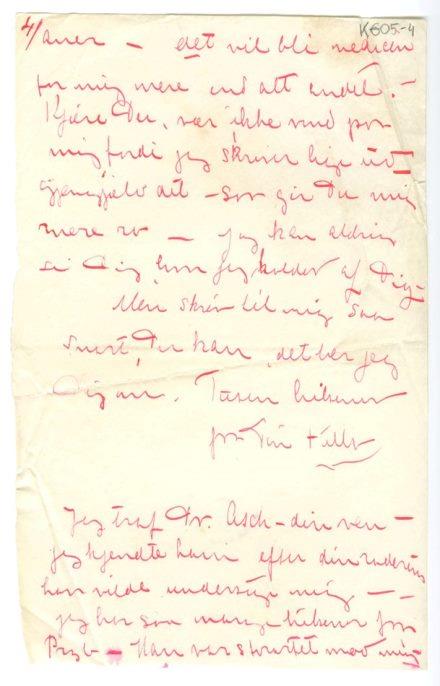 4/
K605-4
aner – det vil bli medicin
for mig mere end alt andet. –
Kjære Du, vær ikke vred paa
mig fordi jeg skriver lige ud –
gjengjæld det – saa gir Du mig
mere ro – jeg kan aldrig
si Dig hvor jeg holder af Dig –
Men skriv til mig saa
snart Du kan, det ber jeg
Dig om. Tusen hilsener
fra Din Tulla
Jeg traf Dr. Asch – din ven –
jeg kjendte ham efter din radering
han vilde undersøge mig – –
jeg har saa mange hilsener fra
Przb – Han var